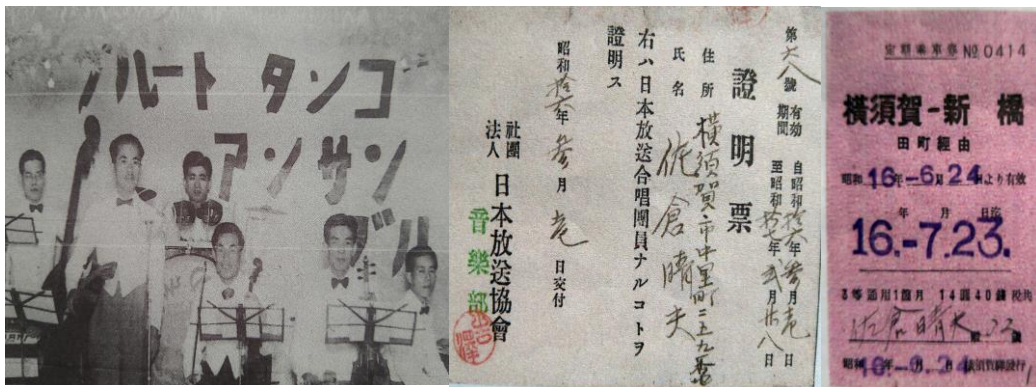 ハート タンゴ
アンサン
ブル
證明票
第六八號
有効期間
自昭和拾六年參月壱日
至昭和拾七年弐月廿八日
住所 横須賀市中里町二五九番
氏名 佐倉晴夫
右ハ日本放送合唱團員ナルコトヲ
證明ス
昭和拾六年參月壱日交付
社團法人 日本放送協會
音樂部
定期乘車券 №0414
横須賀-新橋
田町經由
昭和16年-6月24日より有效
年 月 日迄
16.-7.23.
3等通用1箇月 14圓40錢
佐倉晴夫殿 22歳
昭和16年-6月24日横須賀驛發行